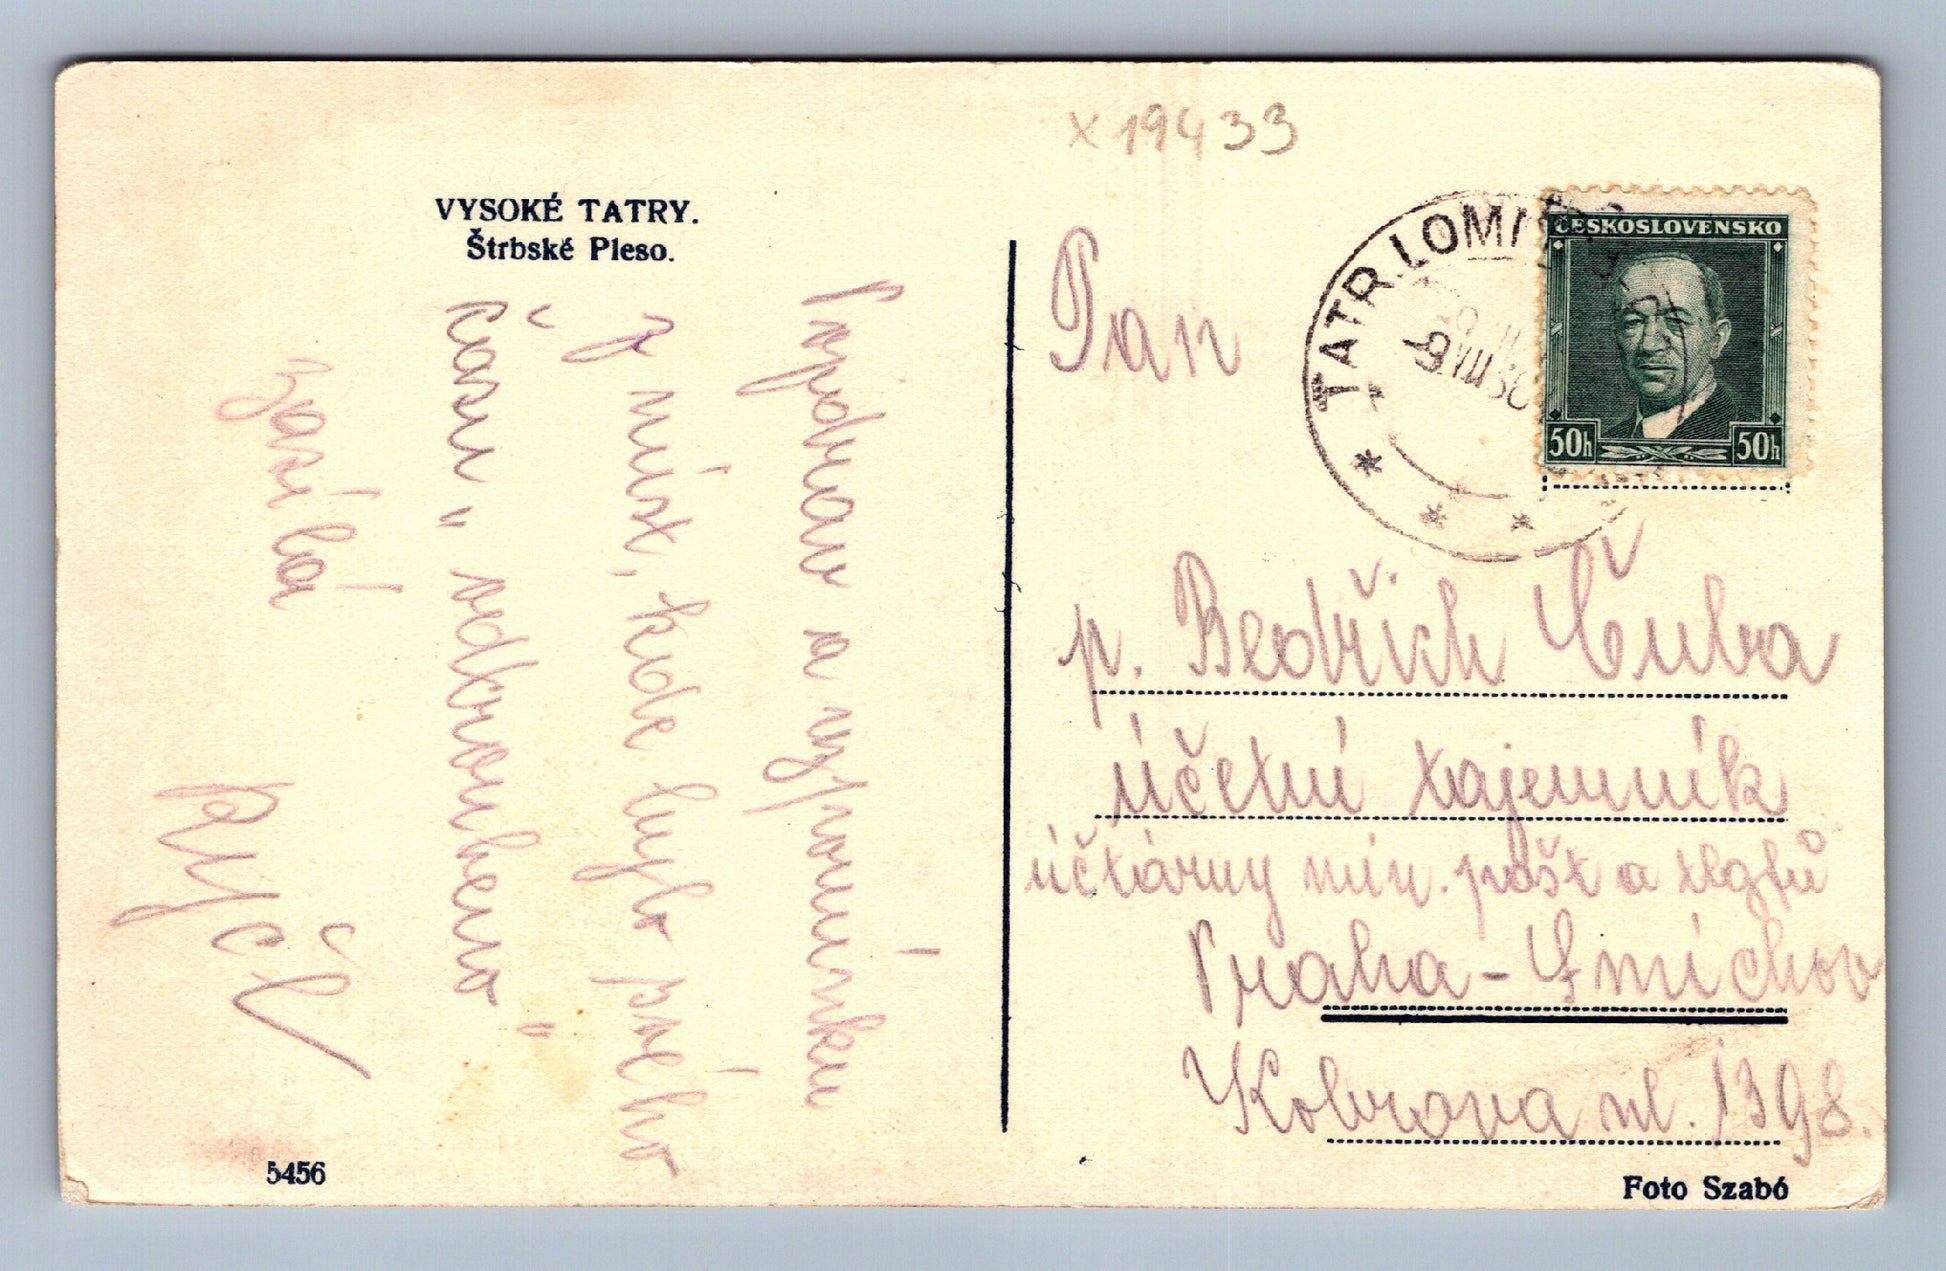 x 19433
VYSOKÉ TATRY.
Štrbské Pleso.
Pozdrav a vzpomínku
z míst, kde bylo psáno
času "odtroubeno"
zasílá
5456
TATR. LOMN
-9.VIII.36
ČESKOSLOVENSKO
50h 50h
Pan
p. Bedřich Čuba
účetní tajemník
účtárny min. pošt a tlgfů
Praha-Smíchov
Kobrova ul. 1398.
Foto Szabó